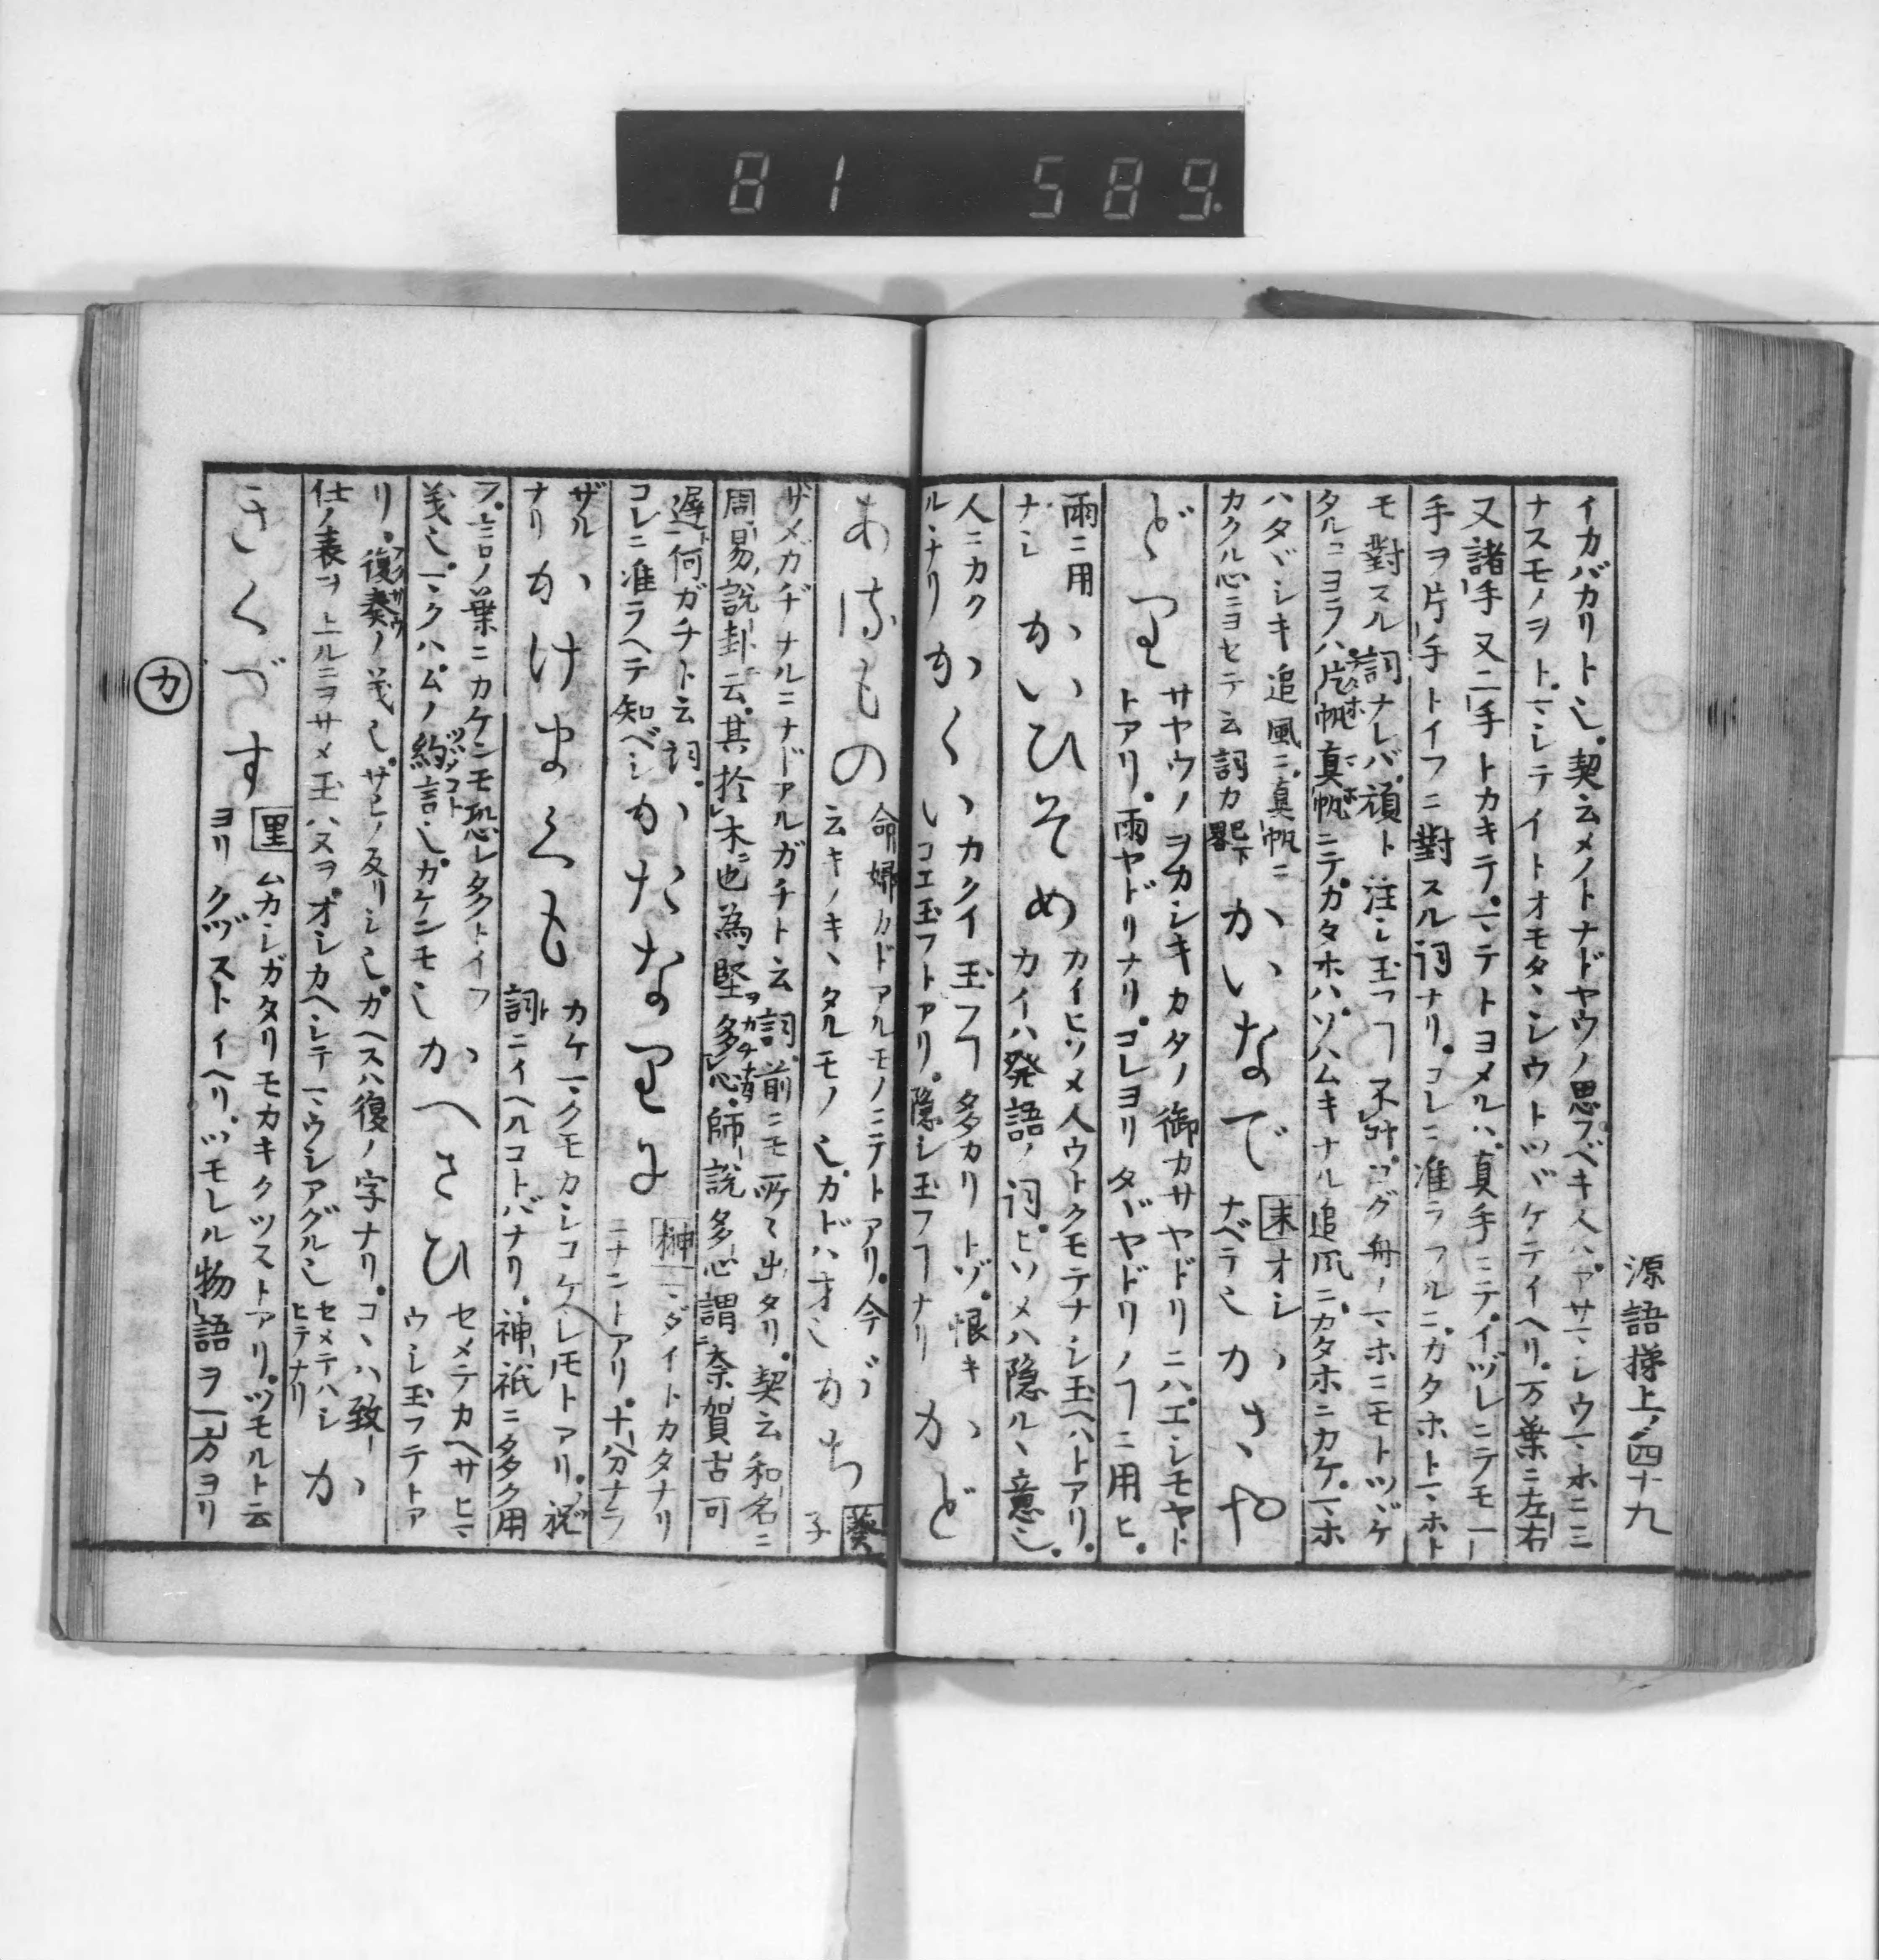 81 589
源語梯上ノ四十九
イカバカリト也。契云メノトナドヤウノ思フベキ人ハ。アサマシウマホニ三
ナスモノヲト。マシテイトオモタヽシウトツヾケテイヘリ。万葉ニ左右
又諸手又二手トカキテ。マテトヨメルハ。真手ニテ。イヅレニテモ一
手ヲ片手トイフニ對スル詞ナリ。コレニ准ラフルニ。カタホトマホト
モ對スル詞ナレバ。頑ト注シ玉フヿ不叶。コグ舟ノマホニモトツヾケ
タルニヨラハ。片帆真帆ニテ。カタホハ。ソハムキナル追風ニ。カタホニカケ。マホ
ハタヾシキ追風ニ。真帆ニ
カクル心ニヨセテ云詞カ畧下
かいなで
末オシ
ナベテ也
かさや
どり
サヤウノヲカシキカタノ御カサヤドリニハ。エシモヤト
トアリ。雨ヤドリナリ。コレヨリタヾヤドリノヿニ用ヒ。
雨ニ用
ナシ
かいひそめ
カイヒソメ人ウトクモテナシ玉ヘハトアリ。
カイハ発語ノ詞。ヒソメハ隠ルヽ意也。
人ニカク
ルヽナリ
かくい
カクイ玉フヿ多カリトゾ。恨キ
コエ玉フトアリ。隠シ玉フヿナリ
かど
あるもの
命婦カドアルモノニテトアリ。今
云キノキヽタルモノ也。カドハ才也
がち
葵
ザメガヂナルニナドアルガチト云詞。前ニモ所々出タリ。契云和名ニ
周易説卦云。其於木也為堅多心。師説多心謂奈賀古可
遅何ガチト云詞。
コレニ准ラヘテ知ベシ
かたなりに
榊
マダイトカタナリ
ニナントアリ。十分ナラ
ザル
ナリ
かけまくも
カケマクモカシコケレモトアリ。祝
詞ニイヘルコトバナリ。神祇ニ多ク用
フ。言ノ葉ニカケンモ恐レ多トイフ
義也。マクハ。ムノ約言也。カケンモ也
かへさひ
セメテカヘサヒマ
ウシ玉フテトア
リ。復奏ノ義也。サヒノ反リシ也。カヘスハ復ノ字ナリ。コヽハ致
仕ノ表ヲ上ルニヲサメ玉ハヌヲ。オシカヘシテマウシアグル也
セメテハシ
ヒテナリ
か
きくづす
里
ムカシガタリモカキクツストアリ。ツモルト云
ヨリクヅストイヘリ。ツモレル物語ヲ一方ヨリ
カ